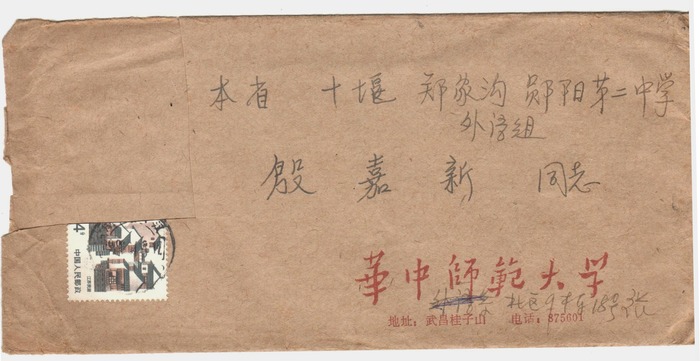 本省 十堰 郑家沟 郧阳第二中学
外语组
殷 嘉 新 同志
4
中国人民邮政
江苏民居
華中師範大学
18号张
地址：武昌桂子山 电话：875601